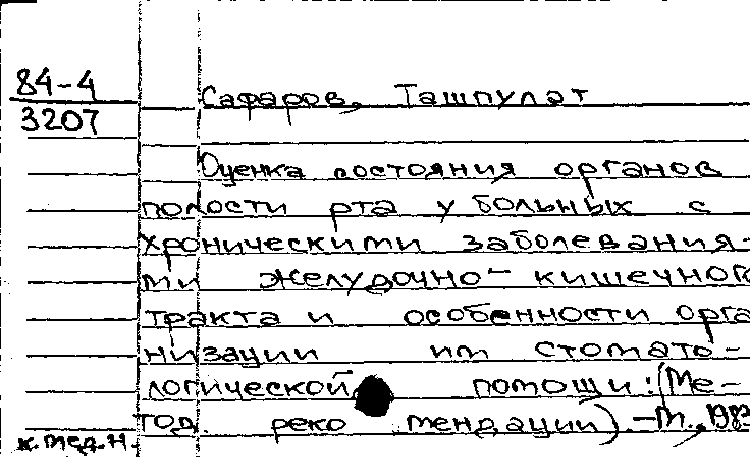 84-4
3207
Сафаров, Ташпулат
Оценка состояния органов
полости рта у больных с
хроническими заболевания-
ми желудочно-кишечного
тракта и особенности орга
низации им стомато-
логической помощи: (Ме-
тод. реко мендации). -Т., 1983
к.мед.н.